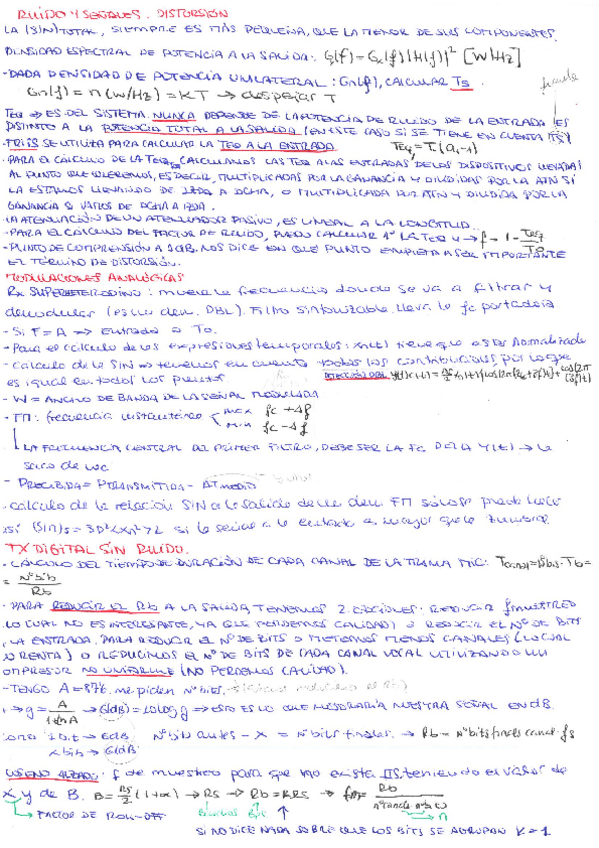 RUIDO Y SEÑALES. DISTORSIÓN
LA (S/N)TOTAL, SIEMPRE ES MÁS PEQUEÑA, QUE LA MENOR DE SUS COMPONENTES.
DENSIDAD ESPECTRAL DE POTENCIA A LA SALIDA: Gs(f) = Ge(f)|H(f)|² [W/Hz]
- DADA DENSIDAD DE POTENCIA UNILATERAL: Gn(f), CALCULAR Ts
Gn(f) = n (W/Hz) = KT → despejar T
Teq → ES DEL SISTEMA. NUNCA DEPENDE DE LA POTENCIA DE RUIDO DE LA ENTRADA ES
DISTINTO A LA POTENCIA TOTAL A LA SALIDA (EN ESTE CASO SI SE TIENE EN CUENTA
- FRIIS SE UTILIZA PARA CALCULAR LA TEQ A LA ENTRADA
- PARA EL CÁLCULO DE LA Teq, CALCULAMOS LAS TEQ A LAS ENTRADAS DE LOS DISPOSITIVOS LLEVADAS
AL PUNTO QUE QUEREMOS, ES DECIR, MULTIPLICADAS POR LA GANANCIA Y DIVIDIDAS POR LA ATN SI
LA ESTAMOS LLEVANDO DE IZDA A DCHA, O MULTIPLICADA POR ATN Y DIVIDIDA POR LA
GANANCIA SI VAMOS DE DCHA A IZDA.
- LA ATENUACIÓN DE UN ATENUADOR PASIVO, ES LINEAL A LA LONGITUD.
- PARA EL CÁLCULO DEL FACTOR DE RUIDO, PUEDO CALCULAR 1º LA TEQ Y →
- PUNTO DE COMPRENSIÓN A 1dB. NOS DICE EN QUE PUNTO EMPIEZA A SER IMPORTANTE
EL TÉRMINO DE DISTORSIÓN.
MODULACIONES ANALÓGICAS
Rx SUPERHETERODINO: mueve la frecuencia donde se va a filtrar y
demodular (es un dem. DBL). Filtro sintonizable. lleva la fc portadora
- Si F = A → entrada a To.
- Para el cálculo de las expresiones temporales: xn(t) tiene que estar normalizada
- Cálculo de la S/N → tenemos en cuenta todas las contribuciones, por lo que
es igual en todos los puntos
- W = ANCHO DE BANDA DE LA SEÑAL MODULADA
- FM: frecuencia instantánea max fc + Δf
min fc - Δf
LA FRECUENCIA CENTRAL DEL PRIMER FILTRO, DEBE SER LA fc DE LA Y(t) → la
- PRECIBIDA = PTRANSMITIDA - ATmedio
- Cálculo de la relación S/N a la salida de un dem. FM sólo se puede hacer
si la señal a la entrada es mayor que la umbral.
TX DIGITAL SIN RUIDO.
- CÁLCULO DEL TIEMPO DE DURACIÓN DE CADA CANAL DE LA TRAMA MIC:
= Nº bits / Rb
- PARA REDUCIR EL Rb A LA SALIDA, TENEMOS 2 OPCIONES: REDUCIR fMUESTREO
LO CUAL NO ES INTERESANTE, YA QUE PERDEMOS CALIDAD) O REDUCIR EL Nº DE BITS
, LA ENTRADA. PARA REDUCIR EL Nº DE BITS O METEMOS MENOS CANALES (LO CUAL
O RENTA) O REDUCIMOS EL Nº DE BITS DE CADA CANAL VOCAL UTILIZANDO UN
OMPRESOR NO UNIFORME (NO PERDEMOS CALIDAD).
- TENGO A = 87'6. me piden nº bits,
→ g = A / 1+ln A → G(dB) = 20log g → esto es lo que MEJORARÍA NUESTRA SEÑAL EN dB.
como 1bit → 6dB Nº bit antes - X = Nº bits finales.
x bits → G(dB)
COSENO ALZADO: f de muestreo para que no exista IIS, teniendo el valor de
α y de B. B = Rs/2 (1+α) → Rs → Rb = K·Rs
FACTOR DE ROLL-OFF
SI NO DICE NADA SOBRE QUE LOS BITS SE AGRUPAN K = 1